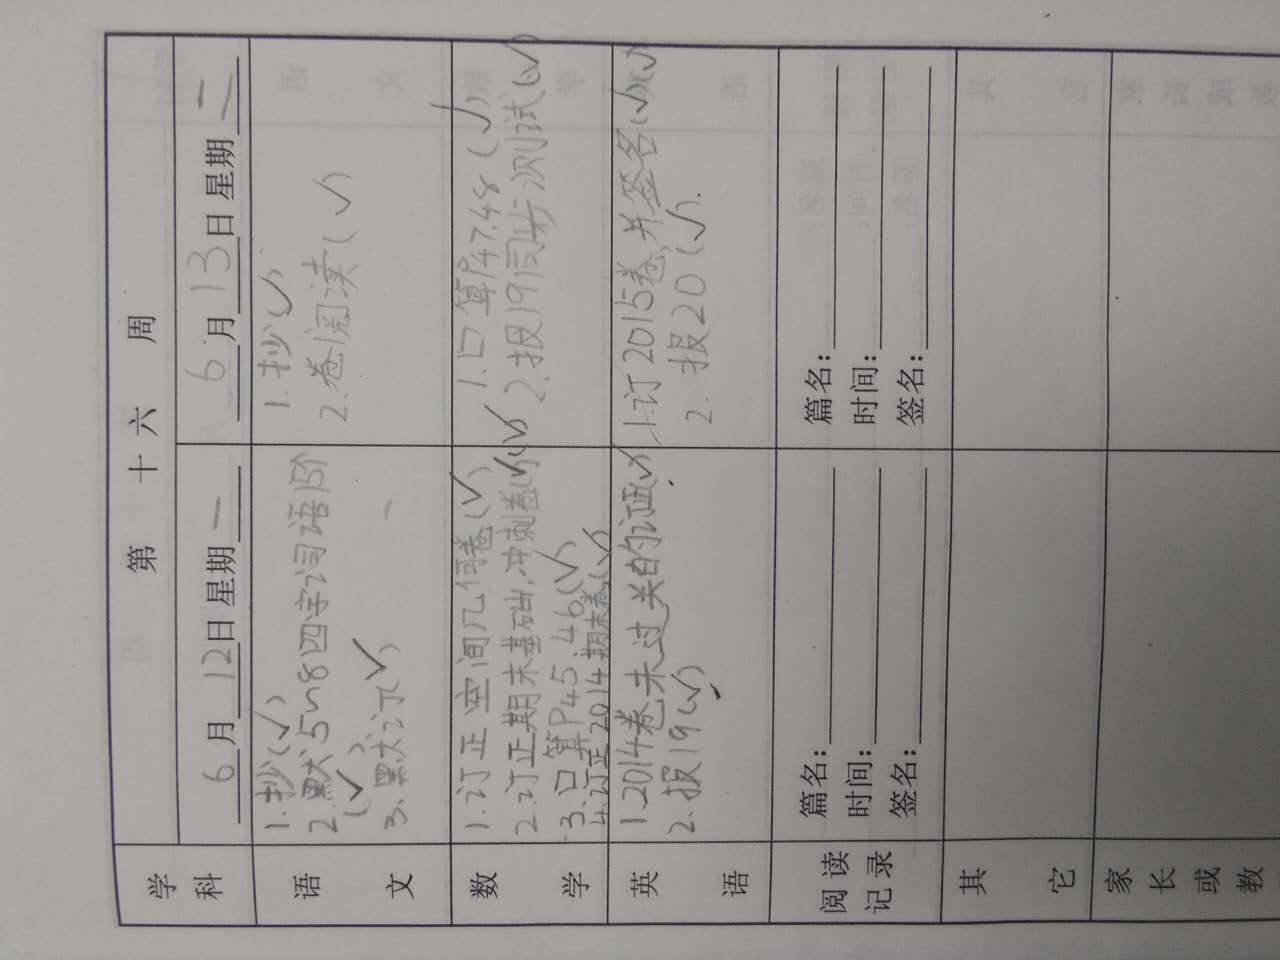 第 十 六 周
学科
6月12日星期一
6月13日星期二
语文
1.抄(√)
2.默5~8四字词语15个
(√)
3.默订√
1.抄(√)
2.卷阅读(√)
数学
1.订正空间几何卷(√)
2.订正期末基础,冲刺卷(√)(√)
3.口算P45.46(√)
4.订正2014期末卷(√)
1.口算P47.48(√)
2.报19同步测试(√)
英语
1.2014卷未过关的证(√)
2.报19(√)
1.订2015卷并签名(√)(√)
2.报20(√).
阅读记录
篇名:
时间:
签名:
篇名:
时间:
签名:
其它
家长或教